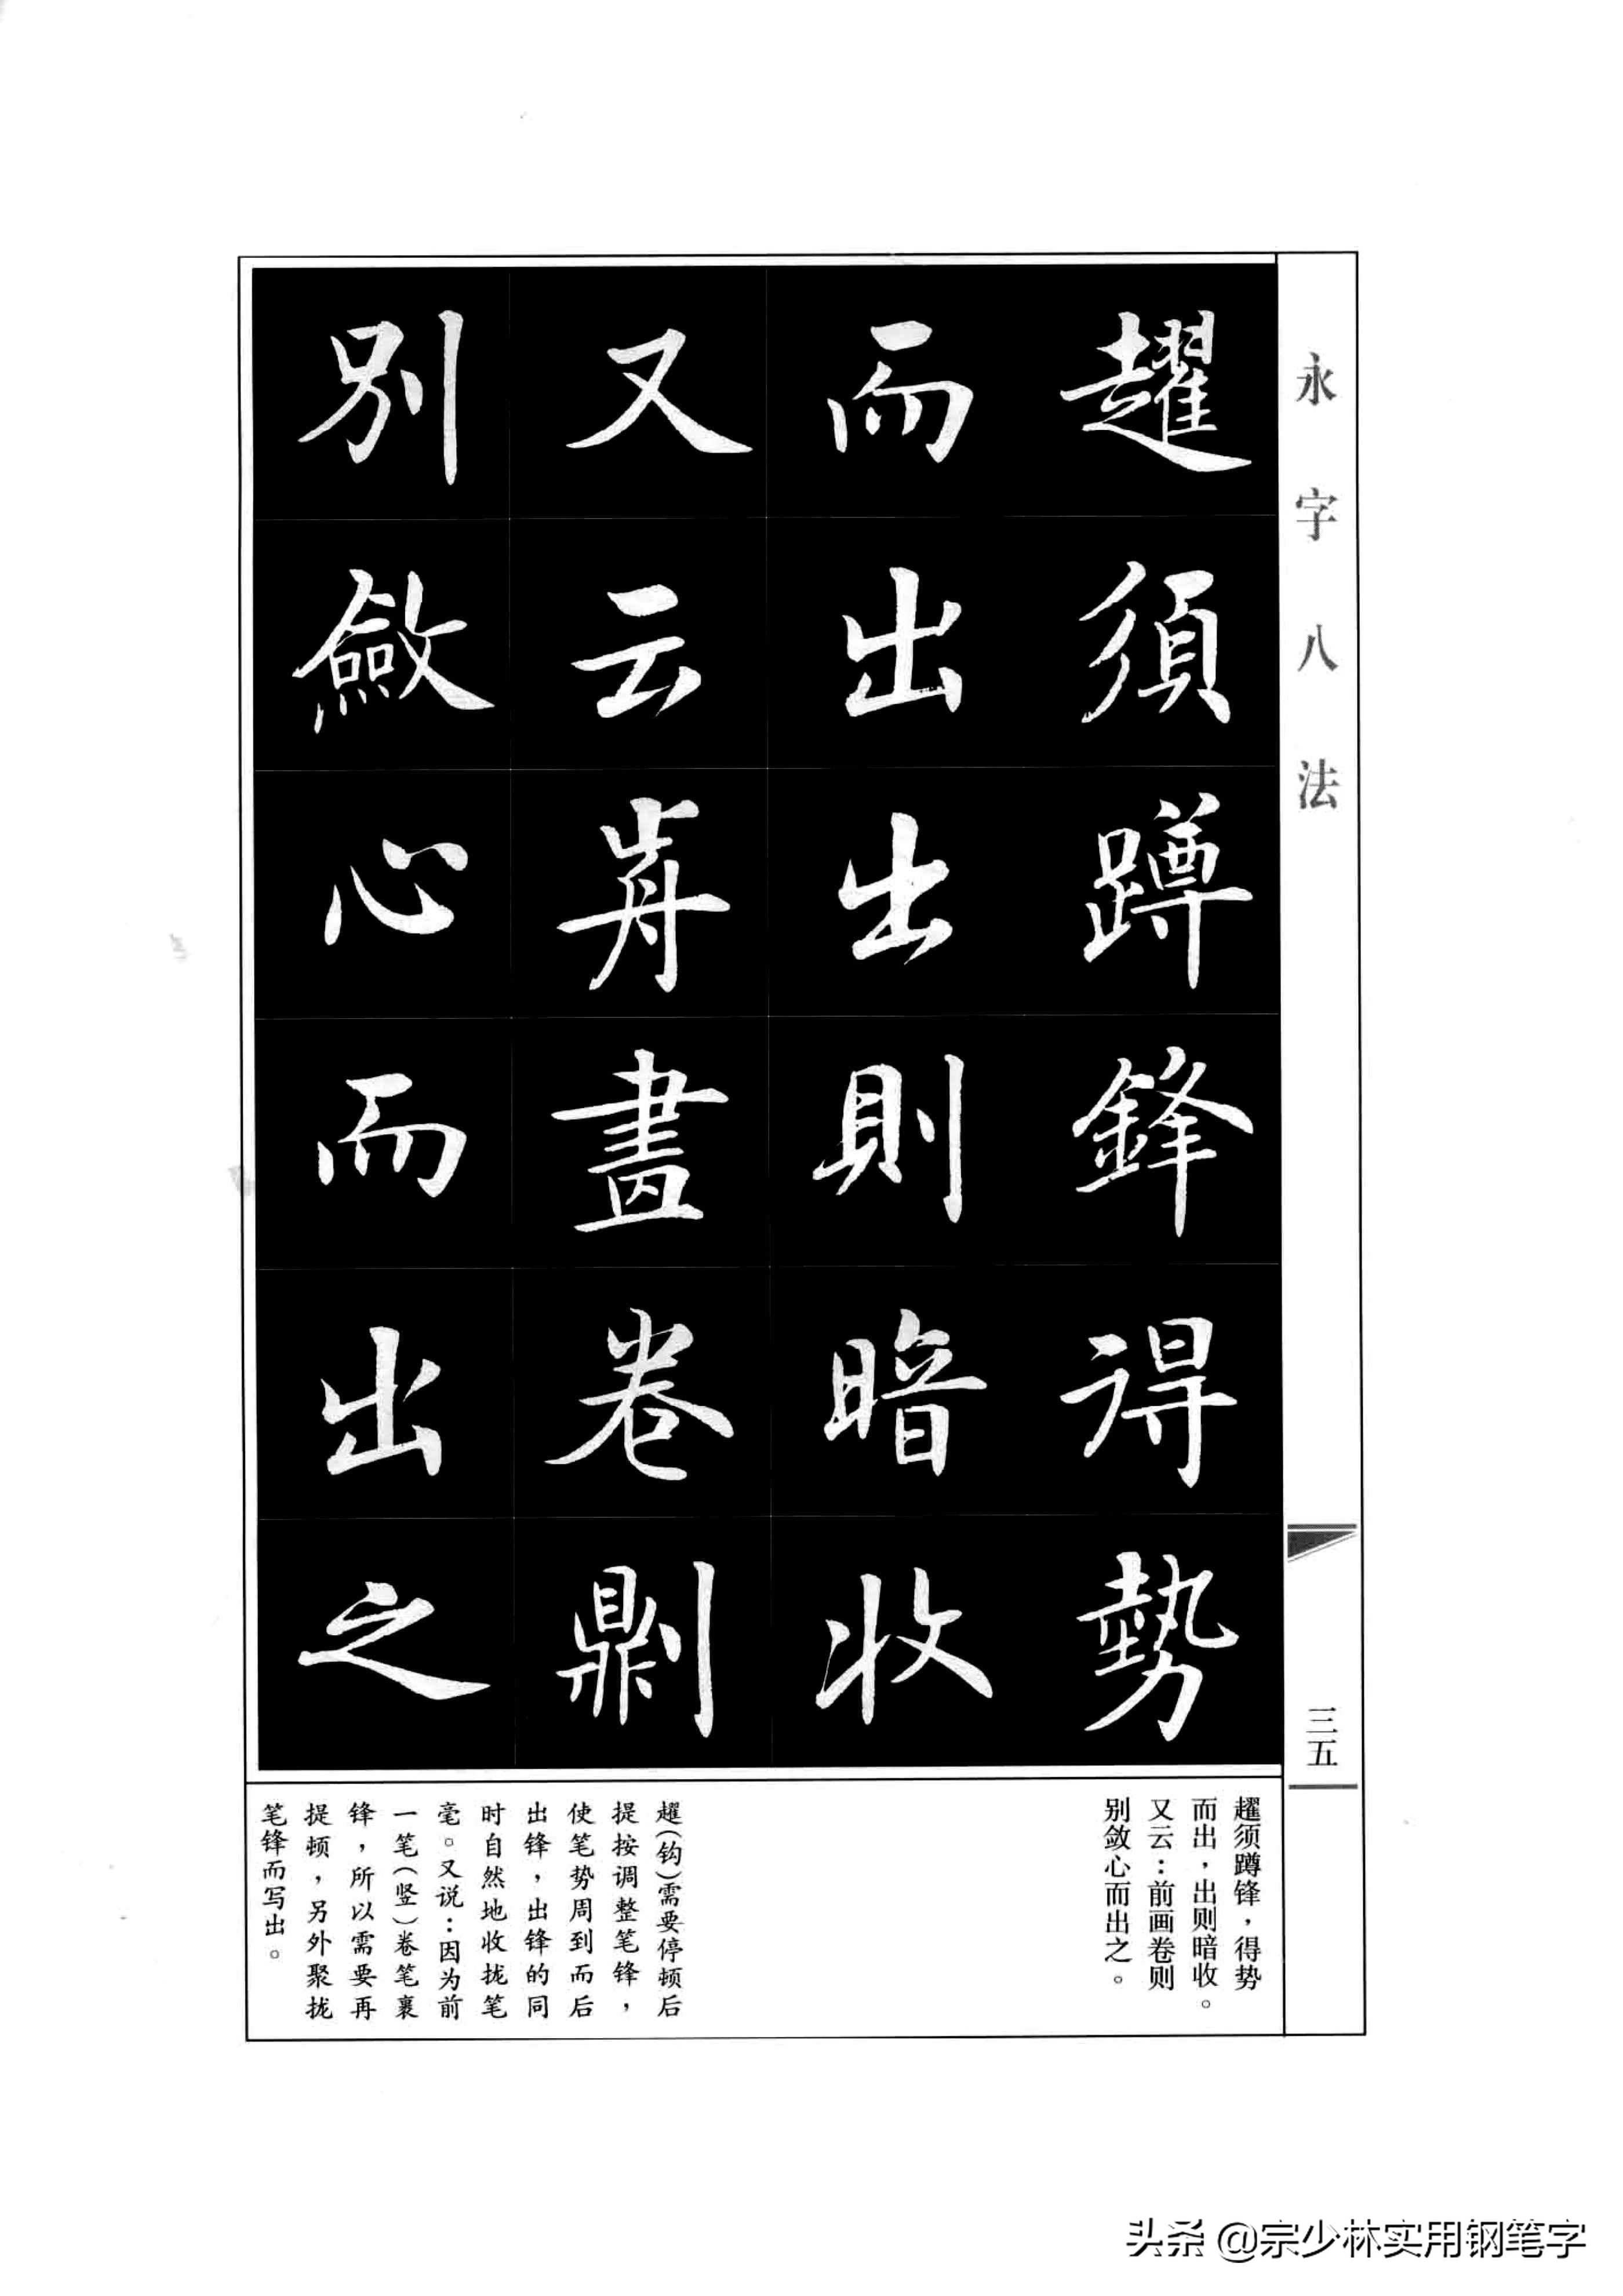 永字八法
三五
趯須蹲鋒得勢
而出出則暗收
又云歬畫卷劓
別斂心而出之
趯须蹲锋，得势
而出，出则暗收。
又云：前画卷则
别敛心而出之。
趯（钩）需要停顿后
提按调整笔锋，
使笔势周到而后
出锋，出锋的同
时自然地收拢笔
毫。又说：因为前
一笔（竖）卷笔裹
锋，所以需要再
提顿，另外聚拢
笔锋而写出。
头条 @宗少林实用钢笔字